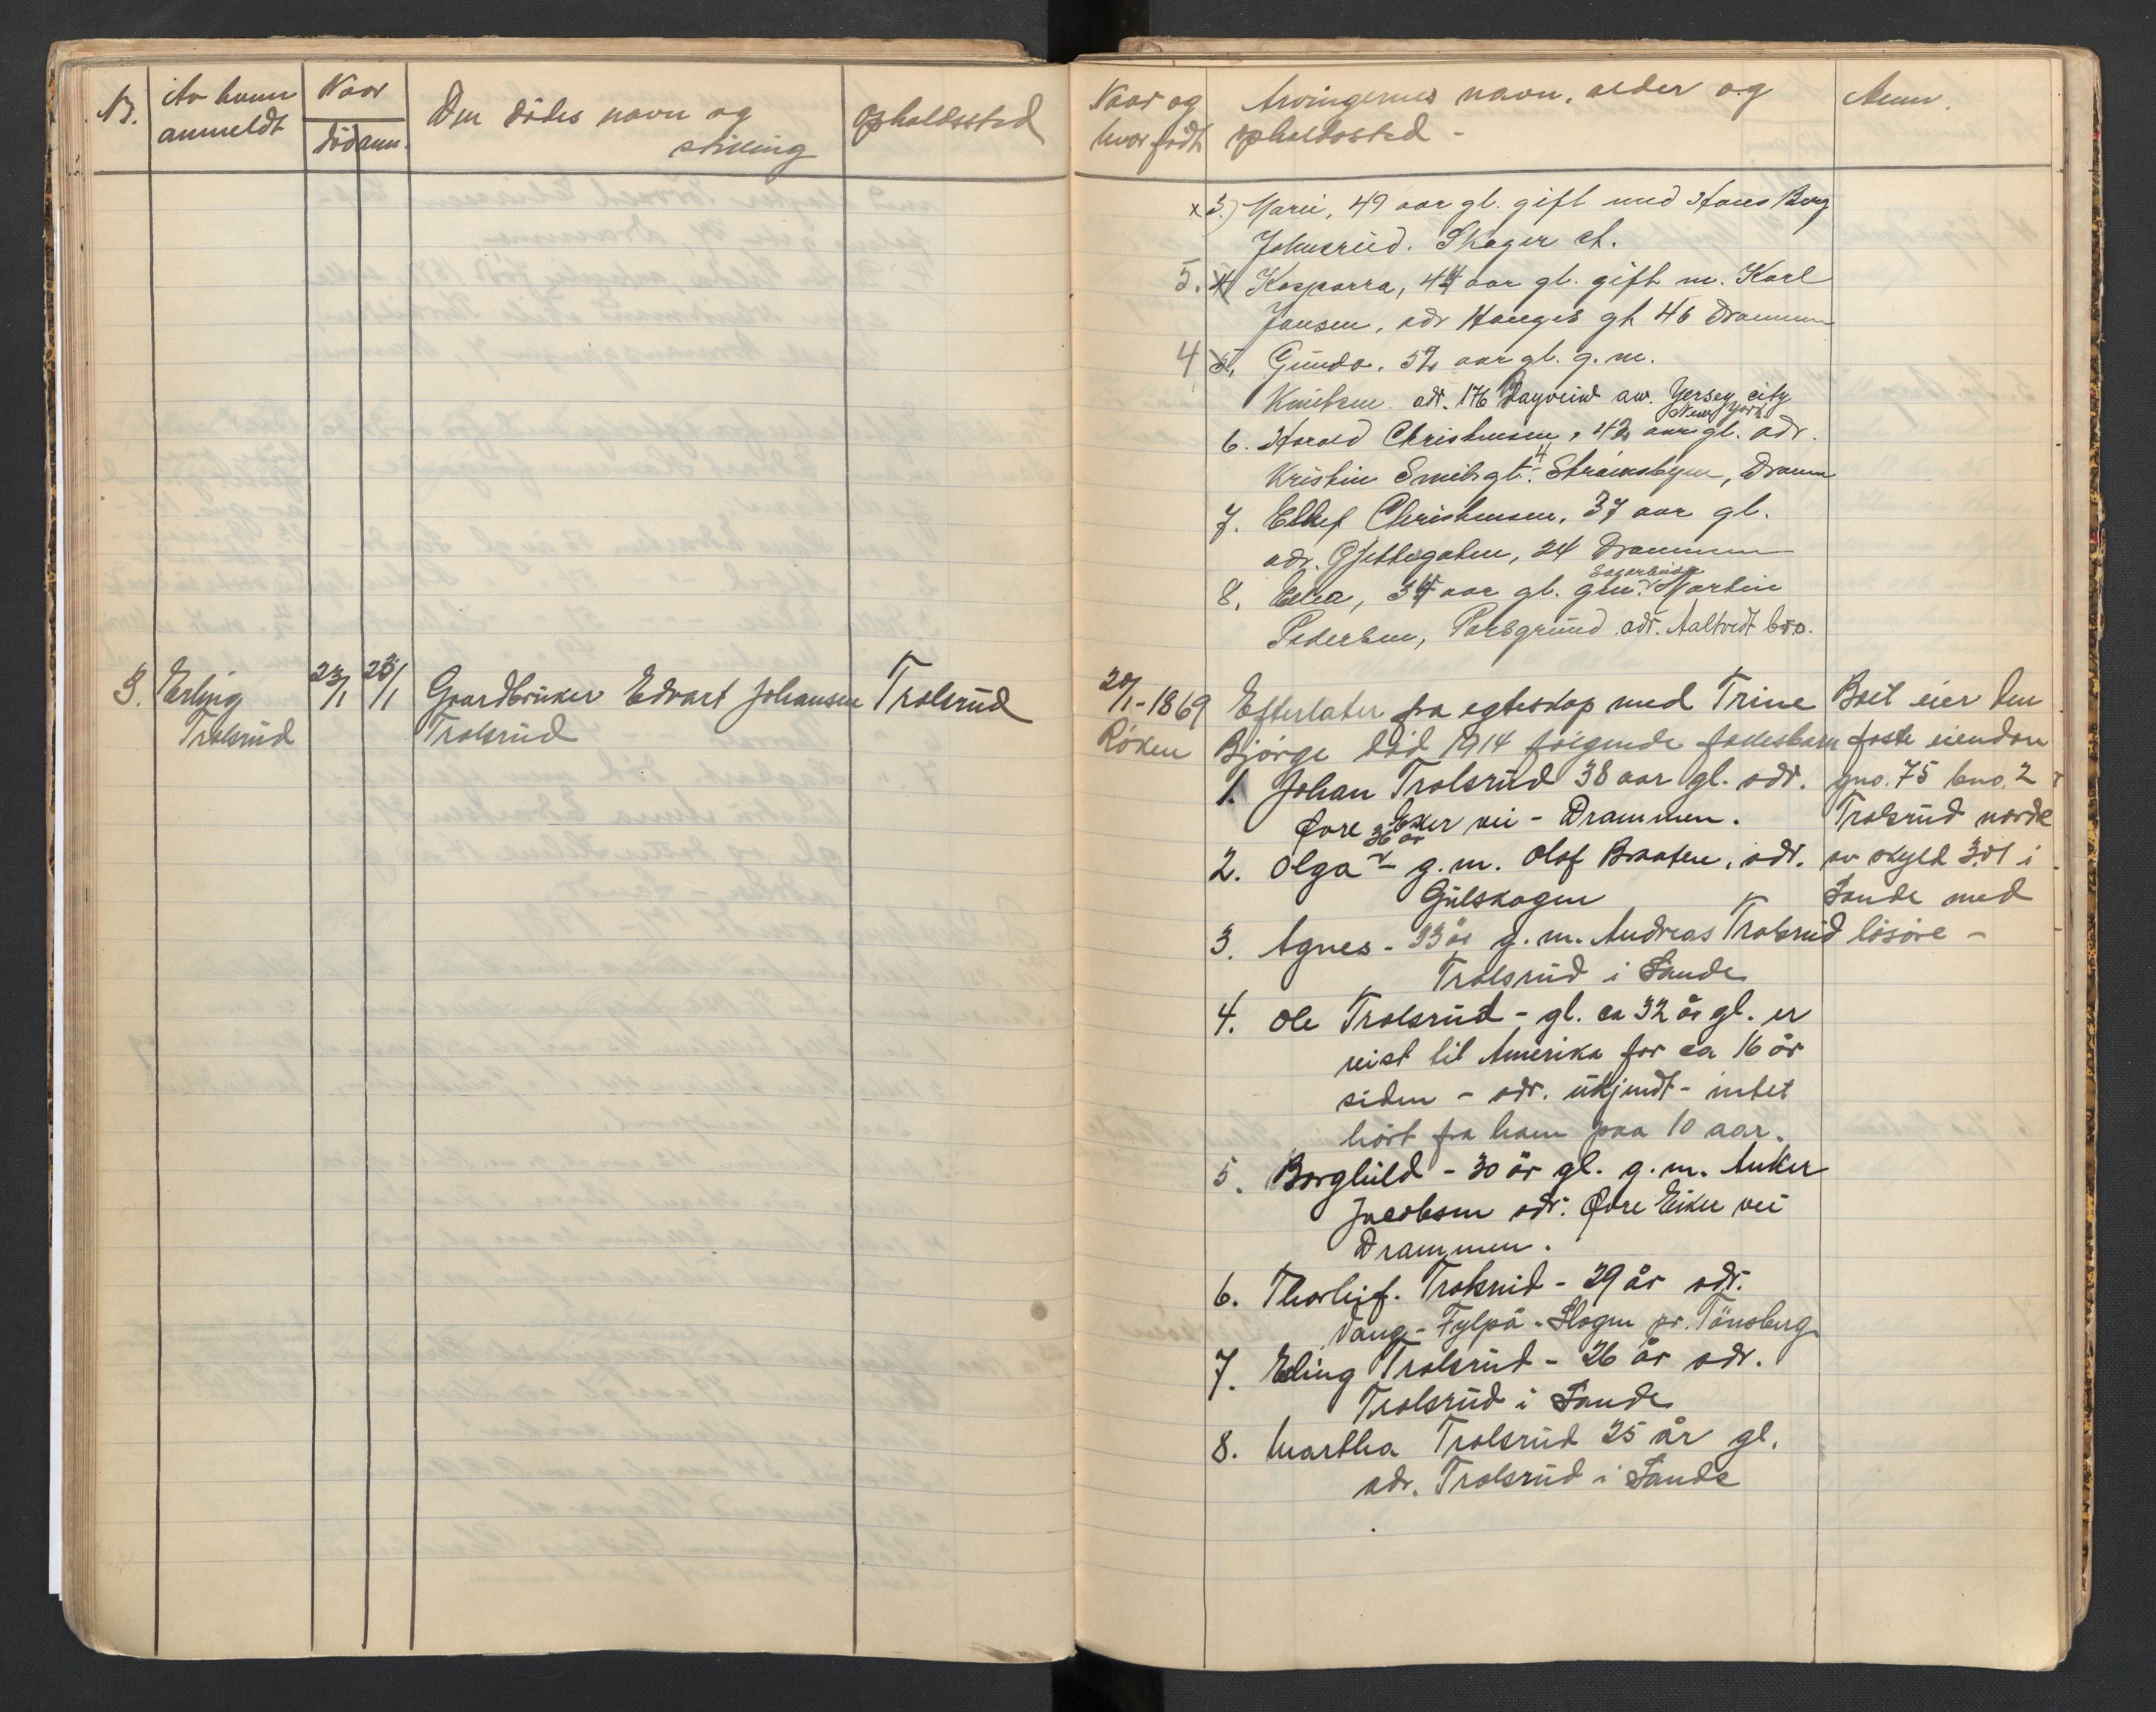 N. Av hvem anmeldt Naar död anm. Den dödes navn og stilling Opholdssted
Naar og hvor födt Arvingernes navn, alder og opholdssted - Anm.
x 3.) Marie, 49 aar gl. gift med Hans Berg
Johnsrud. Skoger st.
5. 4 Kasparra, 44 aar gl. gift m. Karl
Jansen, adr Hauges gt 46 Drammen
4 5, Gunda. 52 aar gl. g. m.
Knutsen. adr. 176 Bayveiw aw. Yersey city
New York
6. Harald Christensen, 42 aar gl. adr.
Kristin Smitsgt. 4 Strömsbyen, Dramm
7. Ellef Christensen, 37 aar gl.
adr. Gjettegaten, 24 Drammen
8, Elna, 34 aar gl. gm. Martin
Pedersen, Porsgrund adr. Aaltvedt bro.
9. Erling 23/1 Gaardbruker Edvart Johansen Trolsrud
Trolsrud Trolsrud
20/1-1869 Efterlater fra egteskap med Trine Boet eier den
Röken Bjørge död 1914 följende fellesbarn faste eiendom
1. Johan Trolsrud 38 aar gl. adr. gno. 75 bno. 2
Øvre Eker vei - Drammen. Trolsrud nordre
36 år
2. Olga - g.m. Olaf Braaten, adr. av skyld 3.01 i
Gulskogen Sande med
3. Agnes - 33 år g. m. Andreas Trolsrud lösöre -
Trolsrud i Sande
4. Ole Trolsrud - gl. ca 32 år gl. er
reist til Amerika for ca 16 år
siden - adr. ukjendt - intet
hört fra ham paa 10 aar.
5. Borghild - 30 år gl. g. m. Anker
Jacobsen adr. Øvre Eiker vei
Drammen.
6. Thorleif. Trolsrud - 29 år adr.
Vang - Fylpå - Slagen pr. Tönsberg
7. Erling Trolsrud - 26 år adr.
Trolsrud i Sande
8. Martha Trolsrud 25 år gl.
adr. Trolsrud i Sande